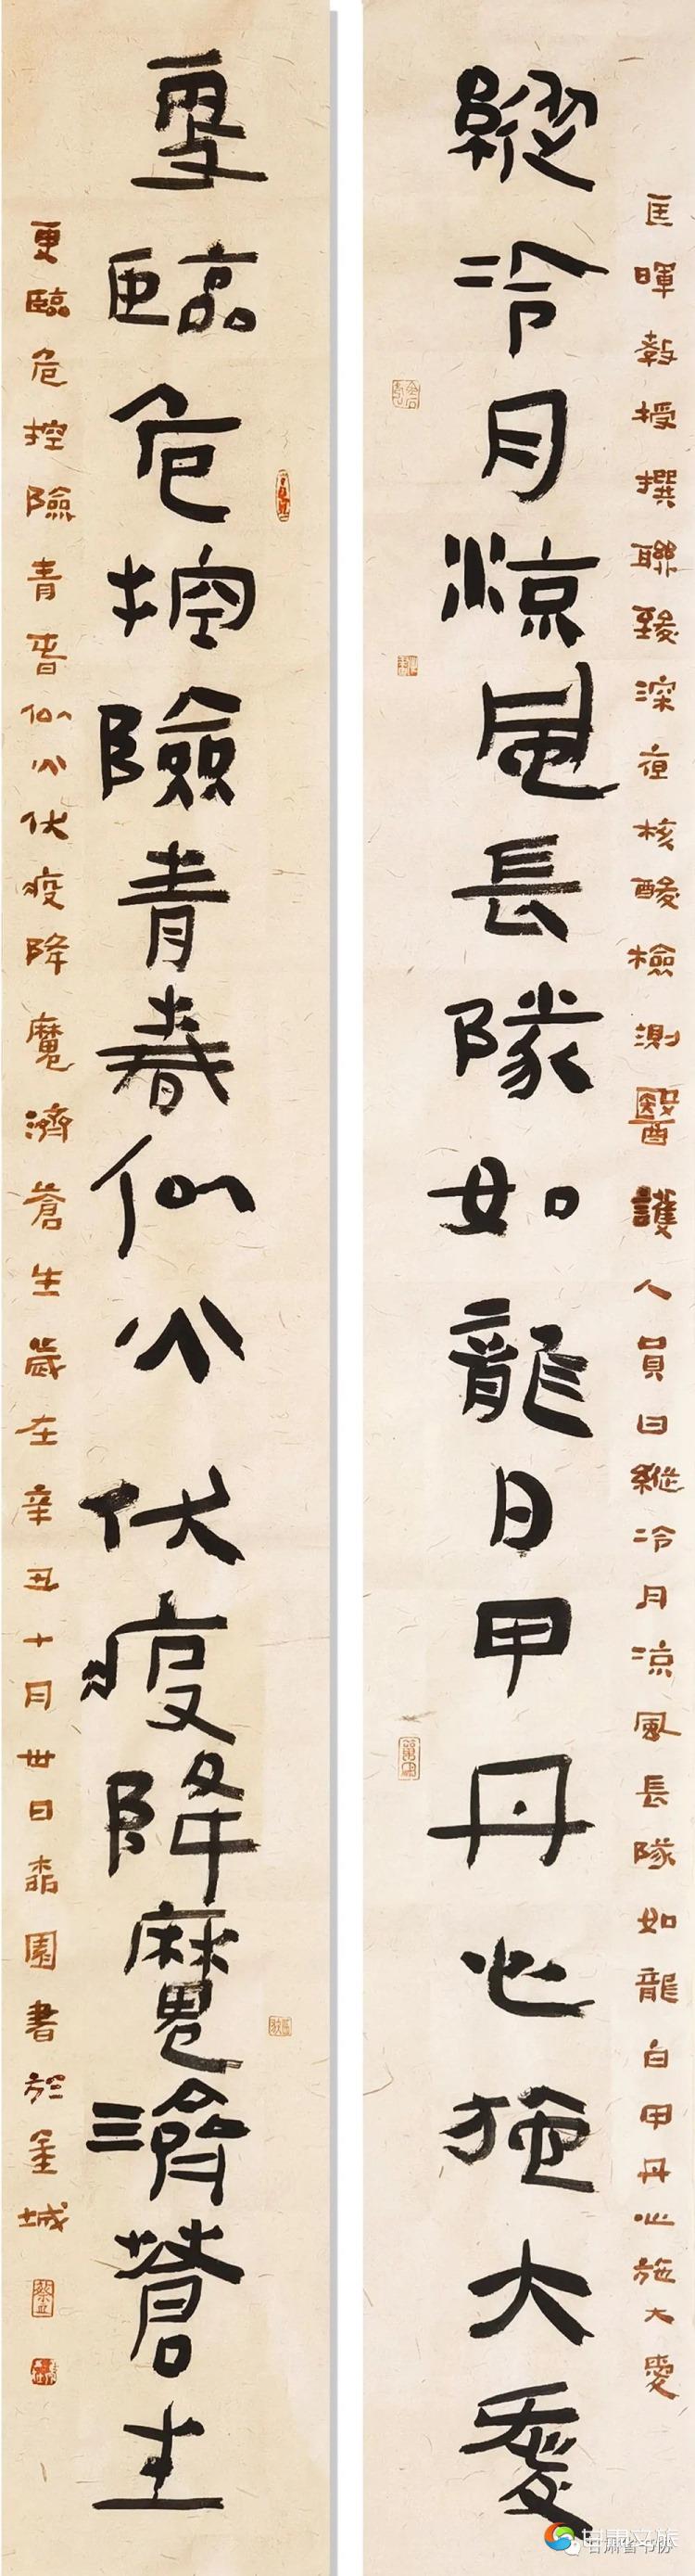 匡暉教授撰聯致深夜核酸檢測醫護人員曰縱冷月涼風長隊如龍白甲丹心施大愛
縱冷月涼風長隊如龍白甲丹心施大愛
更臨危控險青春似火伏疫降魔濟蒼生
更臨危控險青春似火伏疫降魔濟蒼生歲在辛丑十月卅日園書於金城
甘肃文旅
甘肃省书协